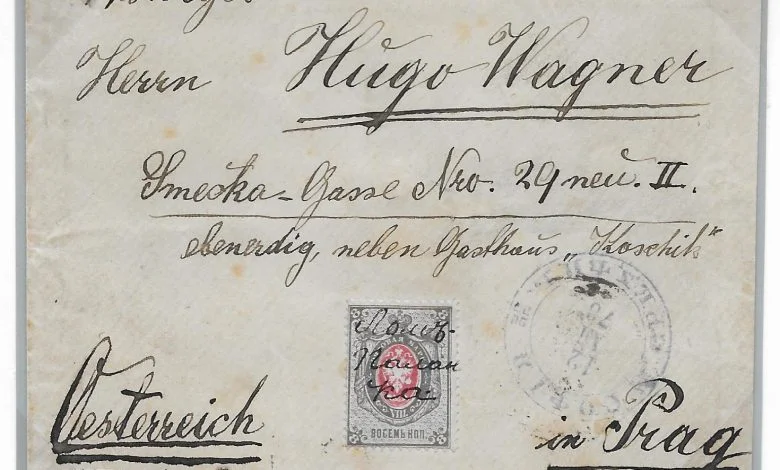 Herrn Hugo Wagner
Smecka-Gasse Nro. 29 neu. II.
ebenerdig, neben Gasthaus „Koschik“
Ломъ-
Палан
ка
VIII
ВОСЕМЬ КОП.
Oesterreich
in Prag